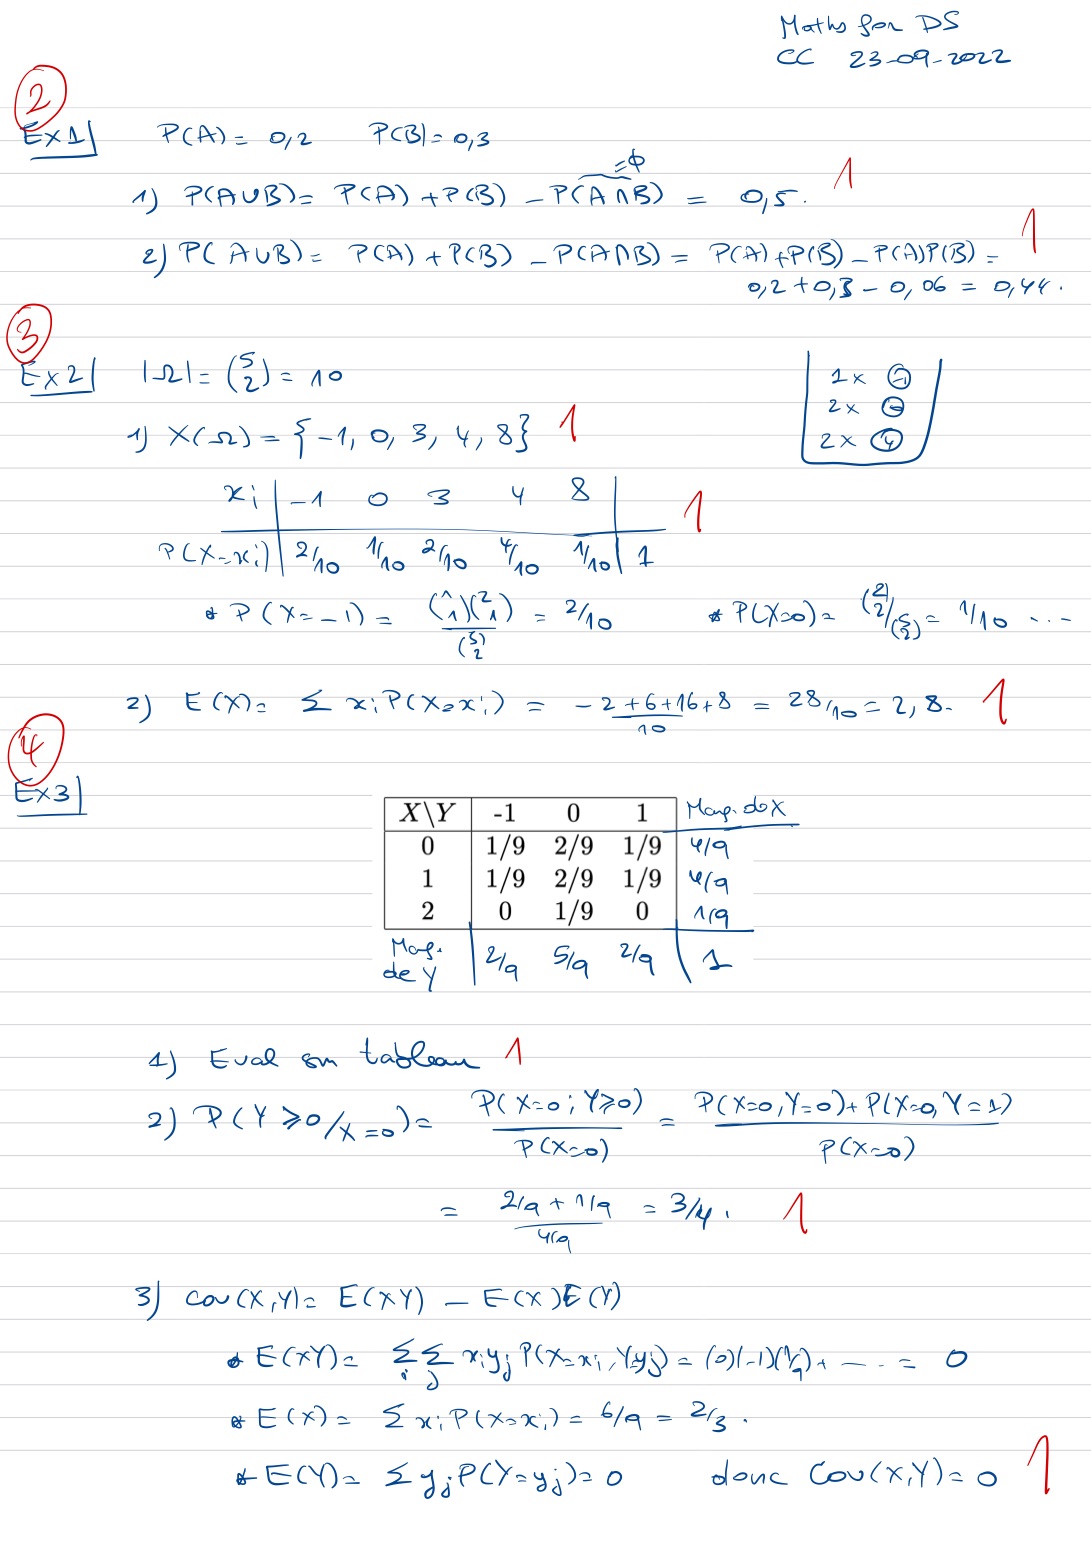 Maths for DS
CC 23-09-2022
②
Ex1| P(A) = 0,2 P(B) = 0,3
1) P(A∪B) = P(A) + P(B) - P(A∩B) = 0,5. 1
=ϕ
2) P(A∪B) = P(A) + P(B) - P(A∩B) = P(A)+P(B) - P(A)P(B) = 1
0,2 + 0,3 - 0,06 = 0,44.
③
Ex2| |Ω| = (5 2) = 10
1x (-1)
2x (0)
2x (4)
1) X(Ω) = {-1, 0, 3, 4, 8} 1
xi | -1 0 3 4 8 | 1
P(X=xi) | 2/10 1/10 2/10 4/10 1/10 | 1
* P(X=-1) = (1 1)(2 1)/(5 2) = 2/10 * P(X=0) = (2 2)/(5 2) = 1/10 ...
2) E(X) = Σ xi P(X=xi) = -2+6+16+8/10 = 28/10 = 2,8. 1
④
Ex3|
X\Y -1 0 1 Marg. de X
0 1/9 2/9 1/9 4/9
1 1/9 2/9 1/9 4/9
2 0 1/9 0 1/9
Marg. de Y 2/9 5/9 2/9 1
1) Eval sur tableau 1
2) P(Y⩾0/X=0) = P(X=0; Y⩾0)/P(X=0) = P(X=0,Y=0)+P(X=0,Y=1)/P(X=0)
= 2/9 + 1/9 / 4/9 = 3/4. 1
3) Cov(X,Y) = E(XY) - E(X)E(Y)
* E(XY) = Σi Σj xi yj P(X=xi, Y=yj) = (0)(-1)(1/9) + --- = 0
* E(X) = Σ xi P(X=xi) = 6/9 = 2/3.
* E(Y) = Σ yj P(Y=yj) = 0 donc Cov(X,Y) = 0 1